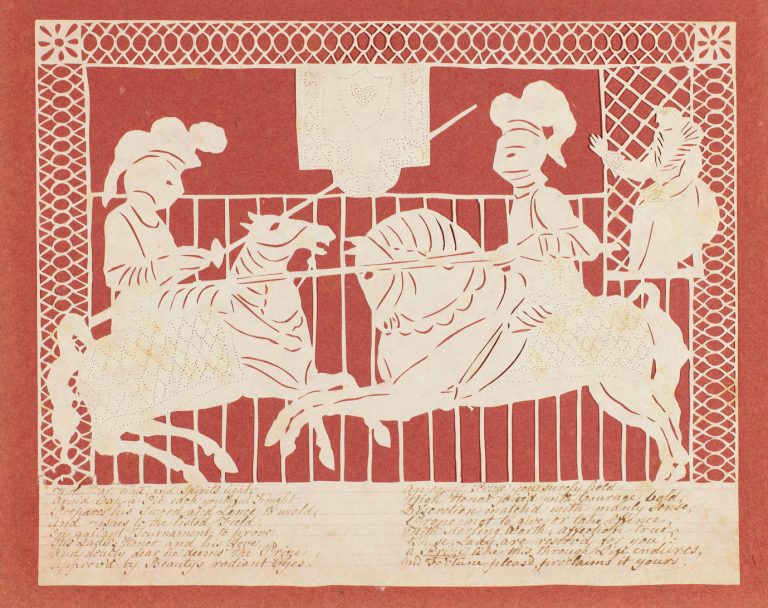 and Spirits light,
Knight
Prepares his Sword and Lance to wield,
And rushes to the listed Field.
In gallant Tournament, to prove
His Lady's Honor and his Love,
And doubly dear he deems the Prize,
Approv'd by Beauty's radiant Eyes.
Prize you surely hold
High Honor join'd with Courage bold,
Discretion match'd with manly Sense,
Prone not to give, or take offence,
With Sterling Worth, affections true,
These, Lady, are reserv'd for you;
A Prize like this through Life endures,
And Fortune pleas'd, proclaims it yours.